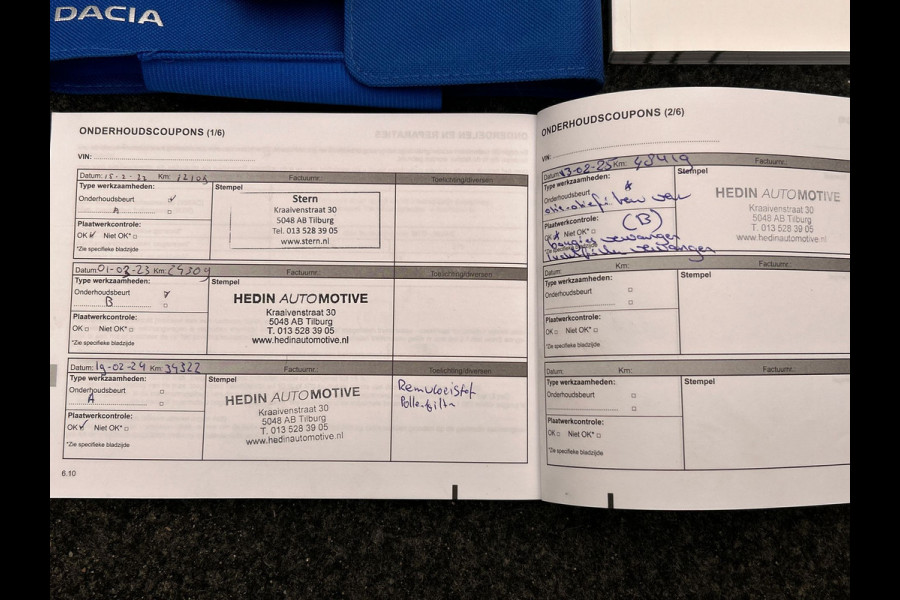 DACIA
ONDERHOUDSCOUPONS (1/6)
VIN:
Datum: 15-2-22 Km: 12105 Factuurnr.: Toelichting/diversen
Type werkzaamheden:
Stempel
Onderhoudsbeurt
A
Plaatwerkcontrole:
OK Niet OK*
*Zie specifieke bladzijde
Stern
Kraaivenstraat 30
5048 AB Tilburg
Tel. 013 528 39 05
www.stern.nl
Datum: 01-02-23 Km: 24309 Factuurnr.: Toelichting/diversen
Type werkzaamheden:
Stempel
Onderhoudsbeurt
B
Plaatwerkcontrole:
OK Niet OK*
*Zie specifieke bladzijde
HEDIN AUTOMOTIVE
Kraaivenstraat 30
5048 AB Tilburg
T. 013 528 39 05
www.hedinautomotive.nl
Datum: 19-02-24 Km: 34322 Factuurnr.: Toelichting/diversen
Type werkzaamheden:
Stempel
Onderhoudsbeurt
A
Plaatwerkcontrole:
OK Niet OK*
*Zie specifieke bladzijde
HEDIN AUTOMOTIVE
Kraaivenstraat 30
5048 AB Tilburg
T. 013 528 39 05
www.hedinautomotive.nl
Remvloeistof
Pollenfilter
6.10
ONDERHOUDSCOUPONS (2/6)
VIN:
Datum: 13-02-25 Km: 48419 Factuurnr.:
Type werkzaamheden:
Stempel
Onderhoudsbeurt
Plaatwerkcontrole:
(B)
OK Niet OK*
bougies vervangen
luchtfilter vervangen
HEDIN AUTOMOTIVE
Kraaivenstraat 30
5048 AB Tilburg
T. 013 528 39 05
www.hedinautomotive.nl
Datum: Km: Factuurnr.:
Type werkzaamheden:
Stempel
Onderhoudsbeurt
Plaatwerkcontrole:
OK Niet OK*
*Zie specifieke bladzijde
Datum: Km: Factuurnr.:
Type werkzaamheden:
Stempel
Onderhoudsbeurt
Plaatwerkcontrole:
OK Niet OK*
*Zie specifieke bladzijde